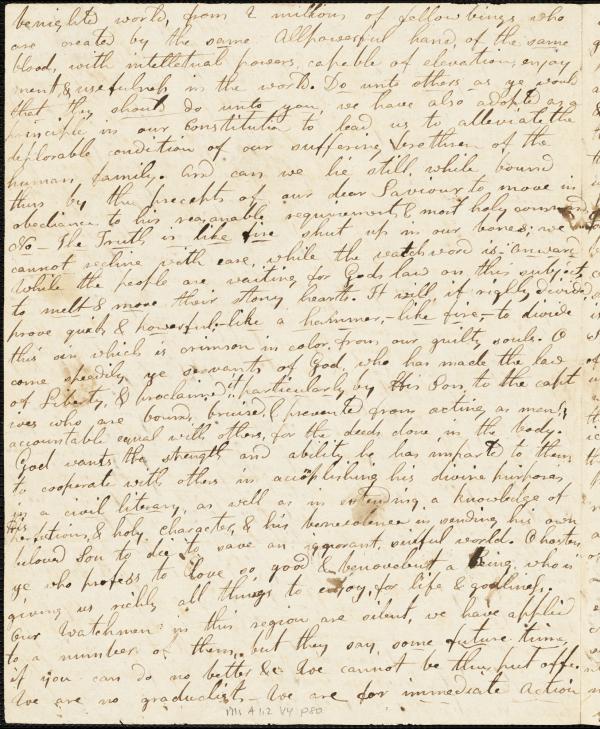 benighted world, from 2 millions of fellow bings who
are created by the same Allpowerful hand, of the same
blood, with intellectual powers, capable of elevation, enjoy
ment, & usefulness in the world. Do unto others as ye would
that they should do unto you, we have also adopted as a
principle in our Constitution to lead us to alleviate the
deplorable condition of our suffering brethren of the
human family. And can we lie still, while bound
thus by the precepts of our dear Saviour to move in
obedience to his reasonable requirements & most holy command
No – The Truth is like fire shut up in our bones; we
cannot recline with ease, while the watchword is "onward
While the people are waiting for Gods law on this subject,
to melt & move their stony hearts. It will, if rightly divided
prove quick & powerful – like a hammer, – like fire, – to divide
this sin which is crimson in color, from our guilty souls. O
come speedily ye servants of God, who has made the law
of Liberty, & proclaimed it particularly by His Son, to the capt
ives who are bound, bruised, & prevented from acting, as men,
accountable equal with others, for the deeds done in the body.
God wants the strength and ability he has imparted to them
to cooperate with others in accomplishing his divine purposes
in a civil literary, as well as in extending a knowledge of
& holy character, & his benevolence in sending his own
beloved Son to die to save an ignorant, sinful world. O hasten,
ye who profess to love so good & benevolent a Being, who is
giving us richly all things to enjoy, for life & godliness.
Our Watchmen in this region are silent, we have applied
to a number of them, but they say, some future time,
if you can do no better &c We cannot be thus put off.
We are no gradualists – We are for immediate action
Ms A 1.2 V4 p80